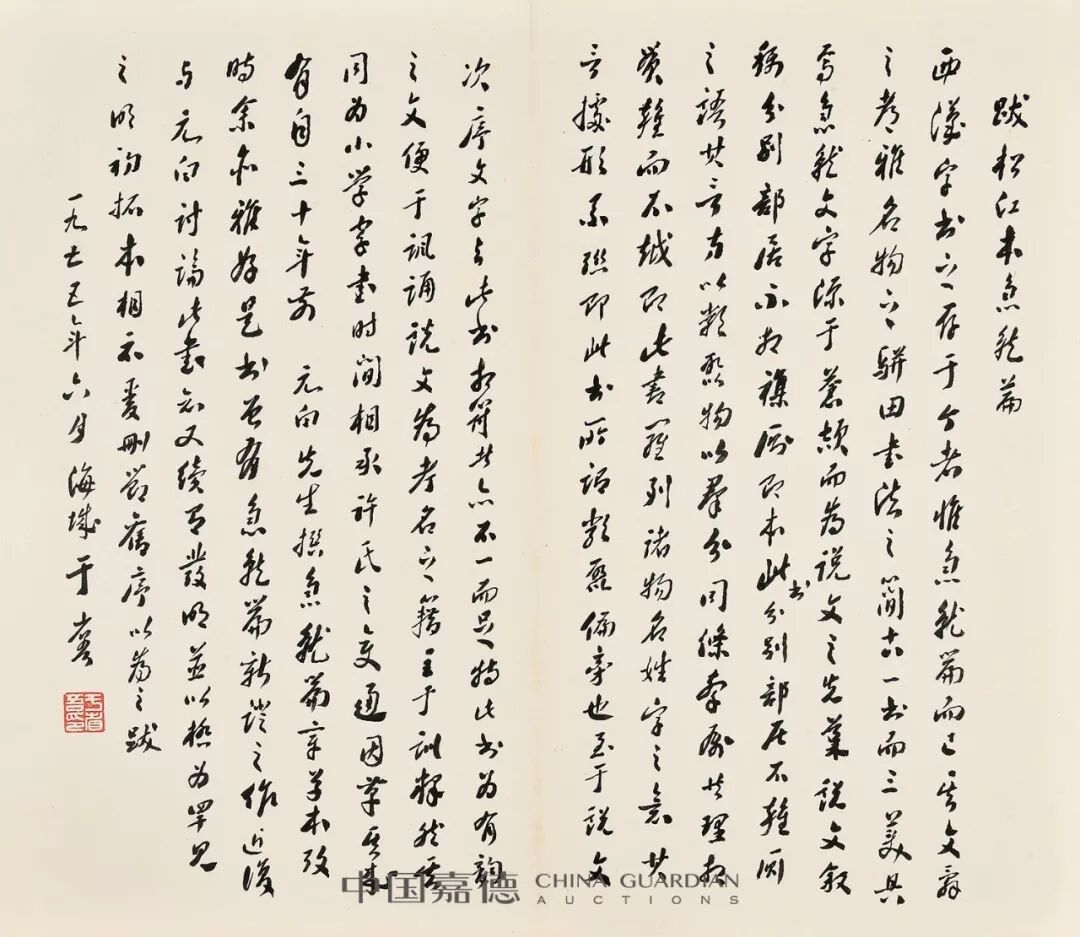 跋松江本急就篇
西汉字书之存于今者惟急就篇而已其文辞
之考雅名物之骈田书法之简古一书而三美具
焉急就文字源于苍颉而为说文之先叶说文叙
称分别部居不相杂厕即本此书分别部居不杂厕
之语其言方以类聚物以群分同条牵属共理相
贯杂而不越即此书罗列诸物名姓字之意其
言据形系联即此书所谓类聚偏旁也至于说文
次序文字与此书相符者亦不一而足特此书为有韵
之文便于讽诵说文为考名之籍主于训释然其
同为小学字书时间相承许氏之旁通因革
有自三十年前 元白先生撰急就篇章草本考
时余亦雅好是书曾有急就篇新证之作近复
与元白讨论此书知又续有发明并以极为罕见
之明初拓本相示爰删节旧序以为之跋
一九七五年六月海城于省吾
于省吾印
中国嘉德 CHINA GUARDIAN
AUCTIONS